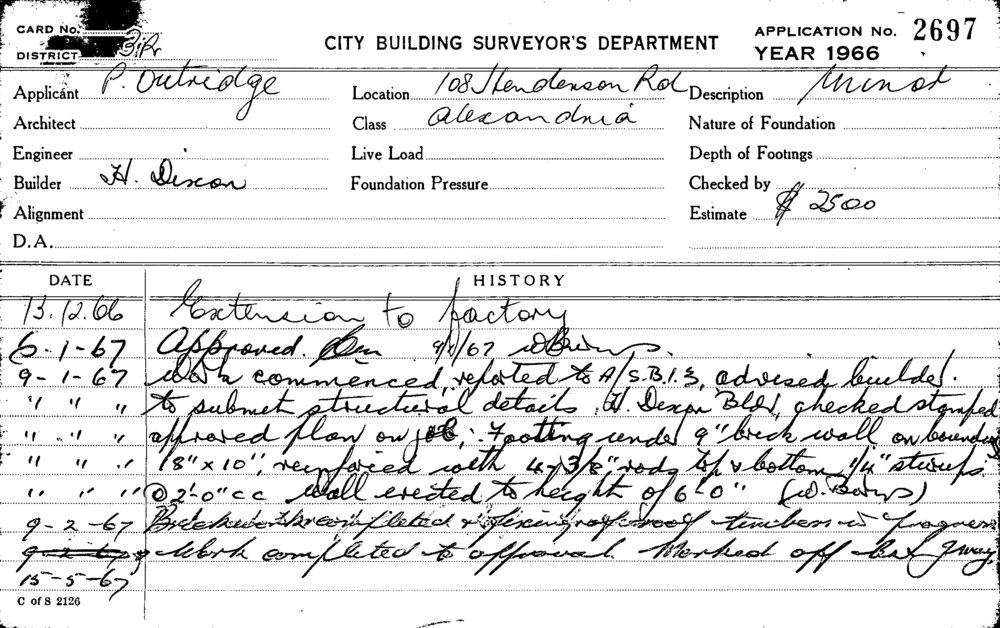 CARD No.
DISTRICT
CITY BUILDING SURVEYOR'S DEPARTMENT
APPLICATION No. 2697
YEAR 1966
Applicant P. Outridge
Location 108 Henderson Rd
Description Minor
Architect
Class Alexandria
Nature of Foundation
Engineer
Live Load
Depth of Footings
Builder H. Dixon
Foundation Pressure
Checked by
Alignment
Estimate $ 2500
D.A.
DATE HISTORY
13.12.66 Extension to factory
6-1-67 Approved. 9/1/67
9-1-67 Work commenced, reported to A/S.B.I.3, advised builder.
" " " to submit structural details. H. Dixon Bldr, checked stamped
" " " approved plan on job, Footing under 9" brick wall on boundary
" " " 18" x 10", reinforced with 4/3/8" rods top & bottom 1/4" stirrups
" " " @ 2'-0" c c Wall erected to height of 6'-0"
9-2-67 Brickwork completed & fixing of roof timbers in progress
9-2-67 Work completed to approval Marked off
15-5-67
C of S 2126